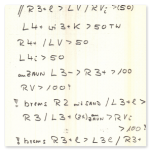 // R3+e > LV / RVi > 150)
L4+ Wi3+K > 50TW
R4+ / LV > 50
L4i > 50
L3- > R3+ > 100
RV > 100?
? brems R2 mi sans / L3+e >
R3 / L3+ > RVi
> 100?
? brems R3+e > L3e / R3+